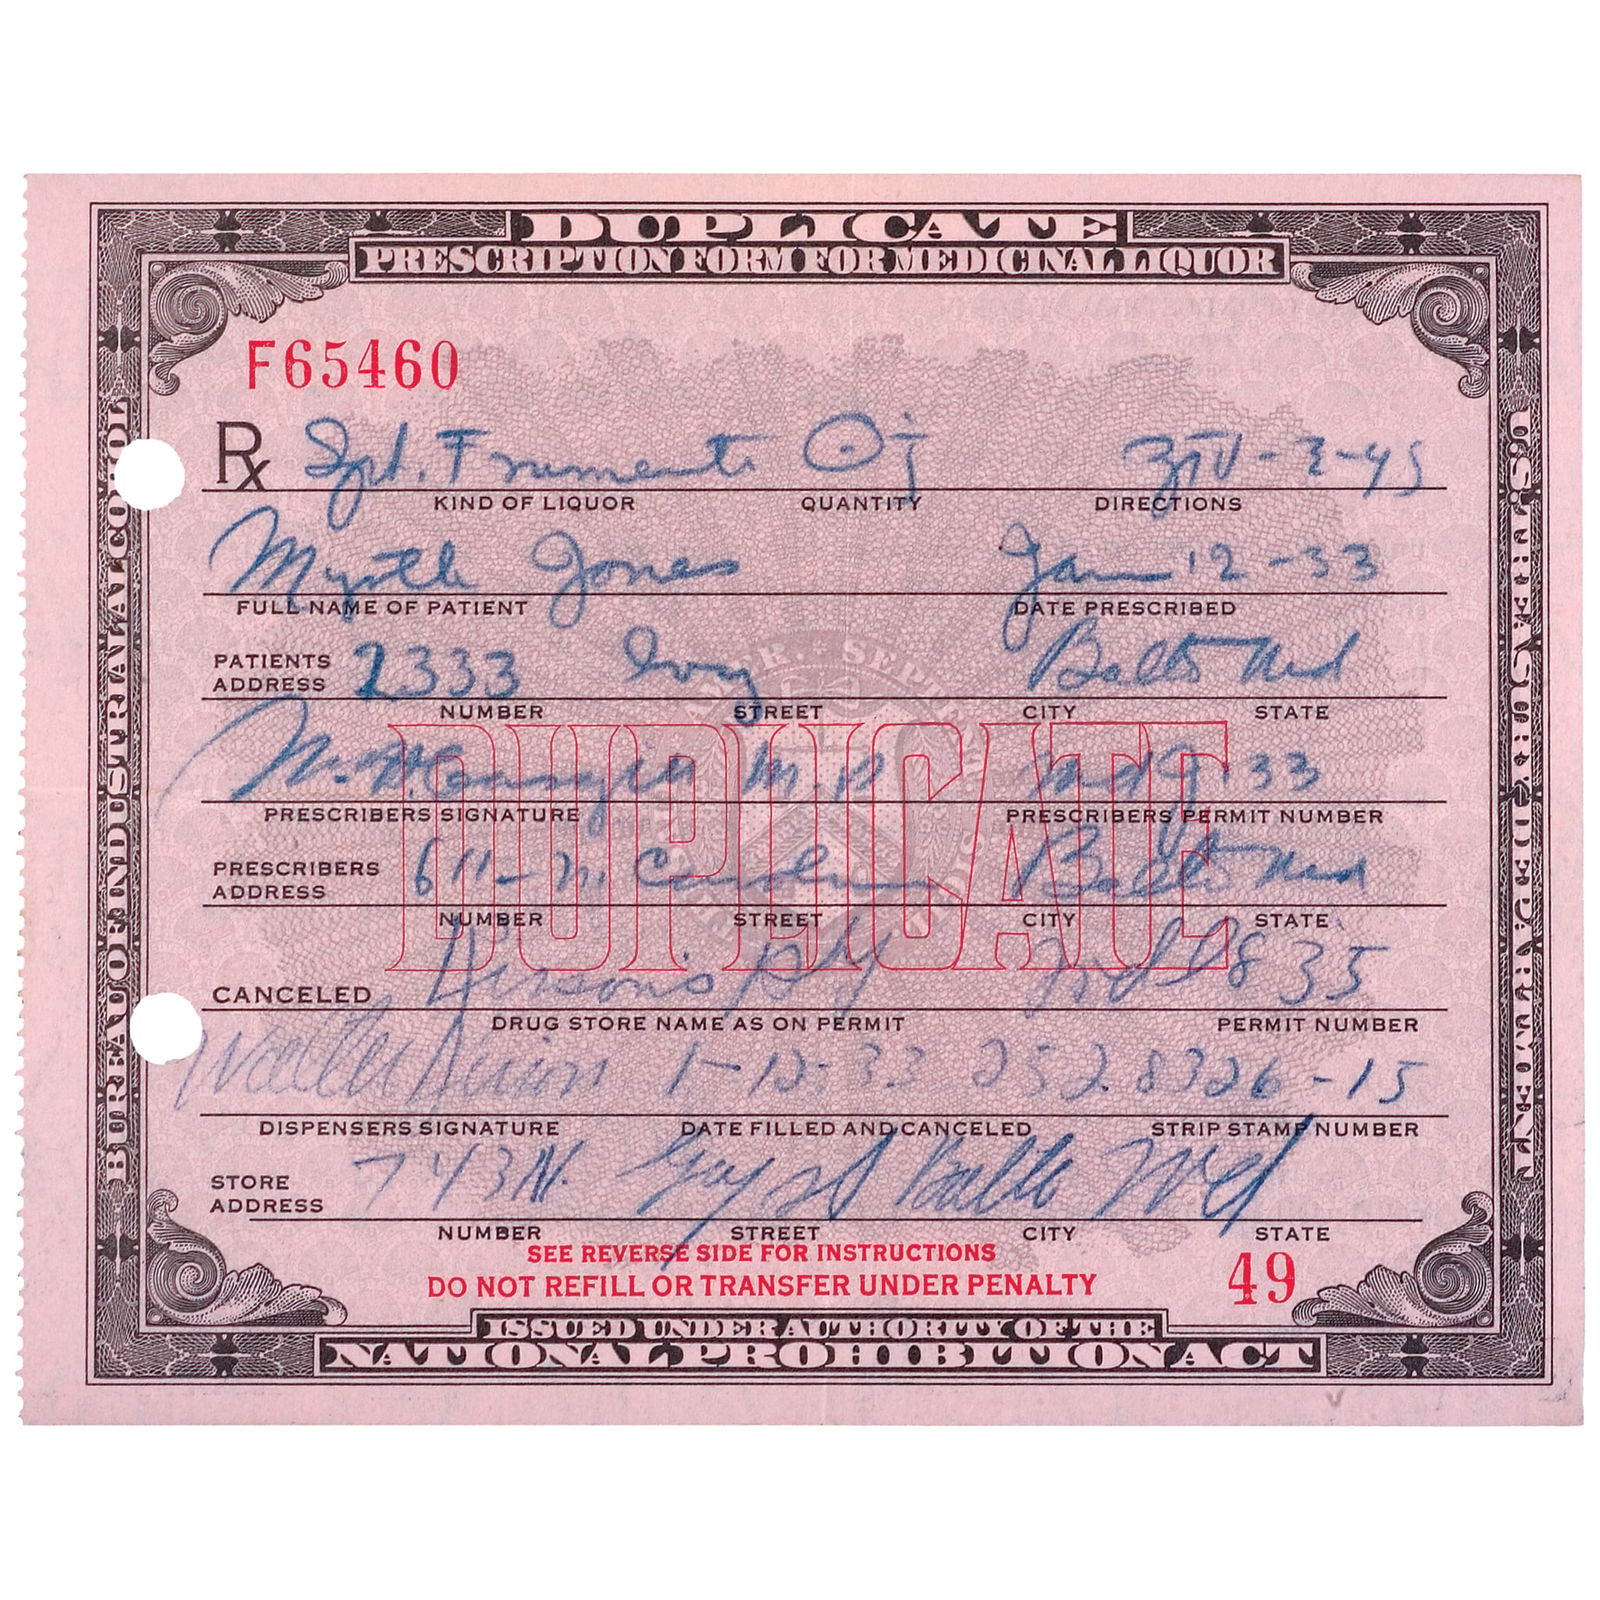 DUPLICATE
PRESCRIPTION FORM FOR MEDICINAL LIQUOR
BUREAU OF INDUSTRIAL ALCOHOL
U.S. TREASURY DEPARTMENT
F65460
Rx Spt. Frumenti Oj
KIND OF LIQUOR QUANTITY DIRECTIONS
Myrtle Jones Jan 12-33
FULL NAME OF PATIENT DATE PRESCRIBED
PATIENTS ADDRESS 2333 Ivory Balto Md
NUMBER STREET CITY STATE
DUPLICATE
M.D. Md 33
PRESCRIBERS SIGNATURE PRESCRIBERS PERMIT NUMBER
PRESCRIBERS ADDRESS 611-N. Caroline Balto Md
NUMBER STREET CITY STATE
CANCELED
DRUG STORE NAME AS ON PERMIT PERMIT NUMBER
Walter 1-12-33 2528326-15
DISPENSERS SIGNATURE DATE FILLED AND CANCELED STRIP STAMP NUMBER
STORE ADDRESS 743 N. Gay St Balto Md
NUMBER STREET CITY STATE
SEE REVERSE SIDE FOR INSTRUCTIONS
DO NOT REFILL OR TRANSFER UNDER PENALTY
49
ISSUED UNDER AUTHORITY OF THE
NATIONAL PROHIBITION ACT